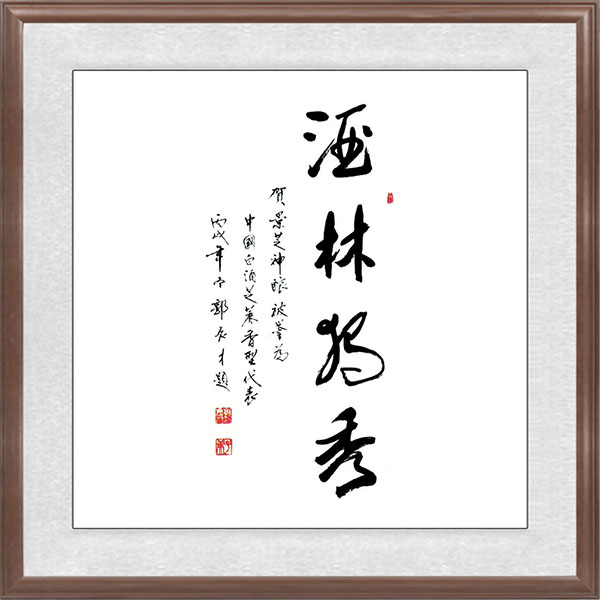 酒林独秀
贺景芝神酿被誉为
中國白酒芝蔴香型代表
丙戌年 郭 题